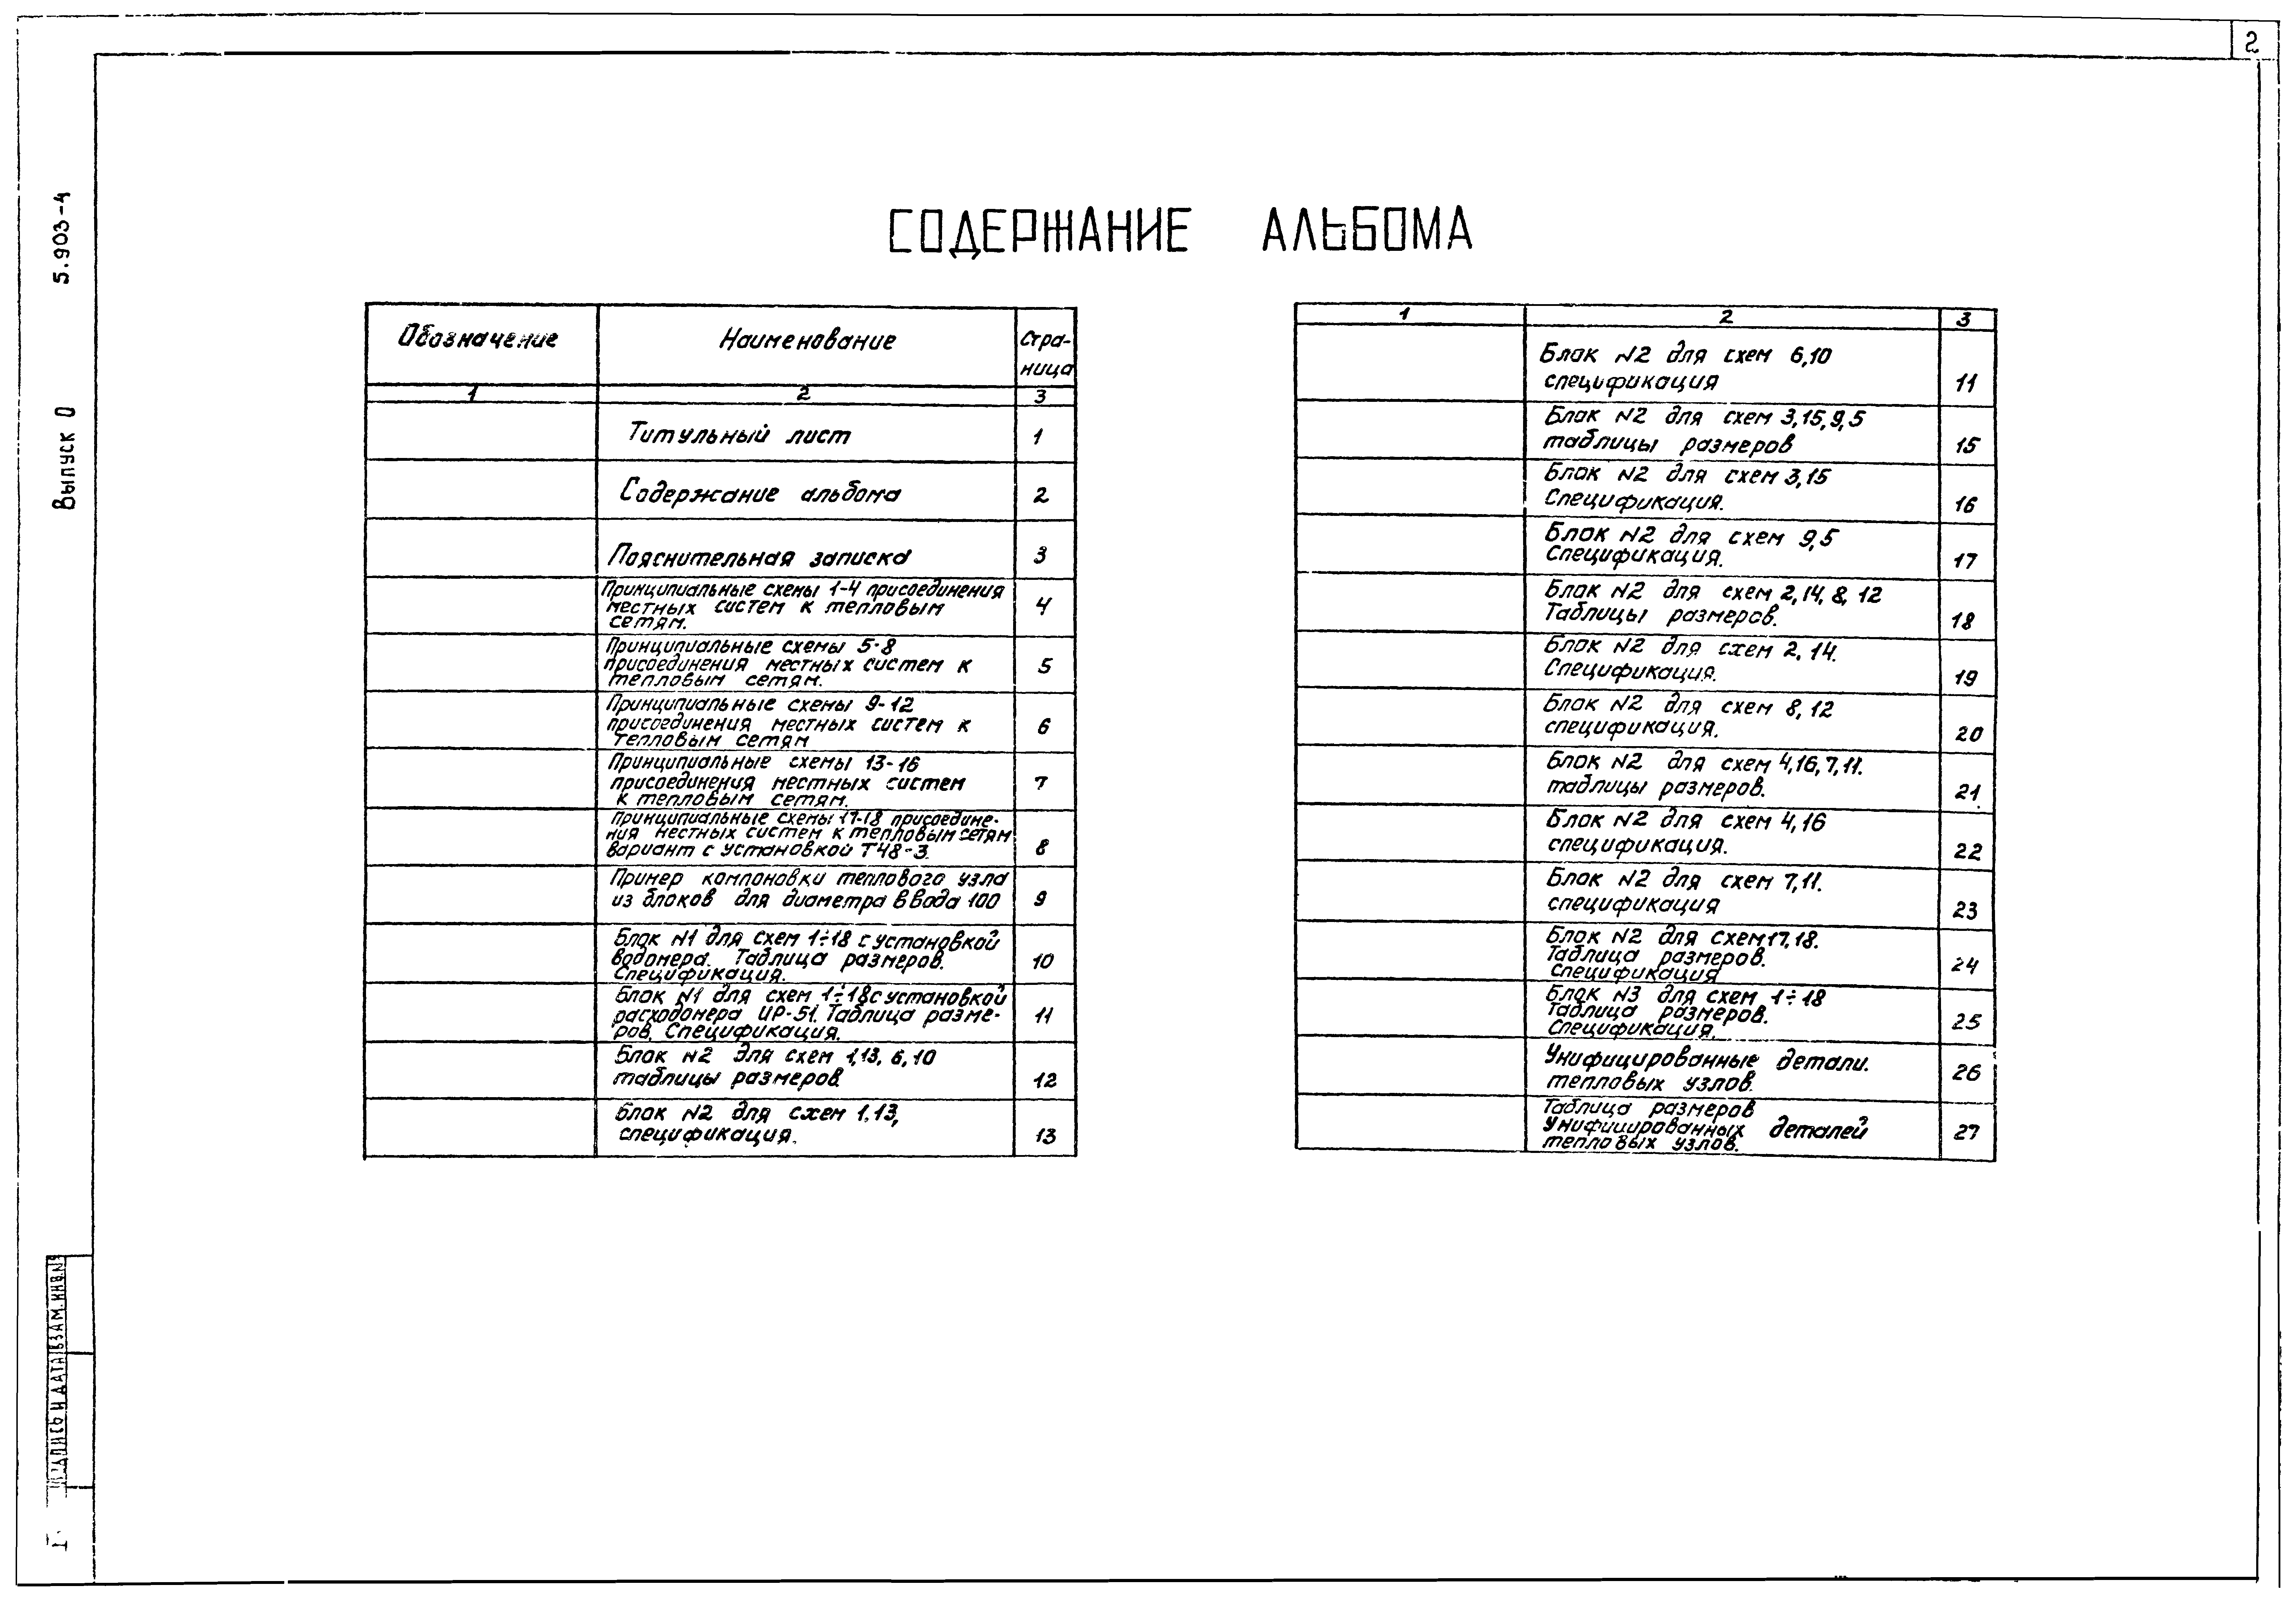 2
5.903-4
Выпуск 0
СОДЕРЖАНИЕ АЛЬБОМА
Обозначение
Наименование
Стра-
ница
1
2
3
Титульный лист
1
Содержание альбома
2
Пояснительная записка
3
Принципиальные схемы 1-4 присоединения
местных систем к тепловым
сетям.
4
Принципиальные схемы 5-8
присоединения местных систем к
тепловым сетям.
5
Принципиальные схемы 9-12
присоединения местных систем к
тепловым сетям
6
Принципиальные схемы 13-16
присоединения местных систем
к тепловым сетям.
7
Принципиальные схемы 17-18 присоедине-
ния местных систем к тепловым сетям
вариант с установкой Т48-3.
8
Пример компоновки теплового узла
из блоков для диаметра ввода 100
9
Блок N1 для схем 1÷18 с установкой
водомера. Таблица размеров.
Спецификация.
10
Блок N1 для схем 1÷18 с установкой
расходомера ИР-51. Таблица разме-
ров. Спецификация.
11
Блок N2 для схем 1,13, 6,10
таблицы размеров
12
Блок N2 для схем 1,13,
спецификация.
13
1
2
3
Блок N2 для схем 6,10
спецификация
11
Блок N2 для схем 3,15,9,5
таблицы размеров
15
Блок N2 для схем 3,15
Спецификация.
16
Блок N2 для схем 9,5
Спецификация.
17
Блок N2 для схем 2,14, 8, 12
Таблицы размеров.
18
Блок N2 для схем 2, 14.
Спецификация.
19
Блок N2 для схем 8, 12
спецификация.
20
Блок N2 для схем 4,16,7,11.
таблицы размеров.
21
Блок N2 для схем 4,16
спецификация.
22
Блок N2 для схем 7,11.
спецификация
23
Блок N2 для схем 17,18.
Таблица размеров.
Спецификация
24
Блок N3 для схем 1÷18
Таблица размеров.
Спецификация.
25
Унифицированные детали.
тепловых узлов.
26
Таблица размеров
Унифицированных деталей
тепловых узлов.
27
ВЗАМ.ИНВ.N
ПОДПИСЬ И ДАТА